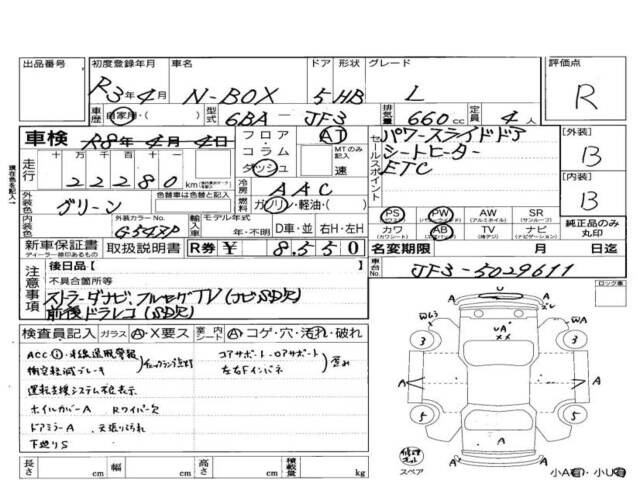 出品番号 初度登録年月 車名 ドア 形状 グレード 評価点
R3年4月 N-BOX 5 HB L R
車歴 自家用・( ) 型式 6BA - JF3 排気量 660 cc 定員 4人
車検 R8年4月4日 フロア AT パワースライドドア [外装]
コラム MTのみ記入 セールスポイント シートヒーター B
走行 十万千百十一 ダッシュ 速 ETC
22280 km 冷房 AAC [内装]
外装色 グリーン 色替車は色替と記入 燃料 ガソリン・軽油・( ) B
PS PW AW SR 純正品のみ丸印
内装色 外装カラーNo. G554XP 輸入車 モデル年式 年・不明 D車・並 右H・左H カワ AB TV ナビ
新車保証書 取扱説明書 R券 ¥ 8,550 名変期限 月 日迄
ディーラー捺印あるもの
後日品[ ] 車台No. JF3-5029611
注意事項 不具合箇所等 ロック車
ストラーダナビ、フルセグTV(ナビSD欠)
前後ドラレコ(SD欠)
検査員記入 ガラス A・X要ス 室内シート A コゲ・穴・汚れ・破れ
コアサポート・ロアサポート
左右Fインパネ
運転支援システム未表示
ホイルカバーA Rワイパー欠
ドアミラーA
下廻りS
長さ cm 幅 cm 高さ cm 積載量 kg
スペア
現在色を記入